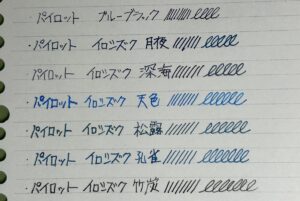 ・パイロット ブルーブラック
・パイロット イロシズク 月夜
パイロット イロシズク 深海
・パイロット イロシズク 天色
・パイロット イロシズク 松露
・パイロット イロシズク 孔雀
・パイロット イロシズク 竹炭